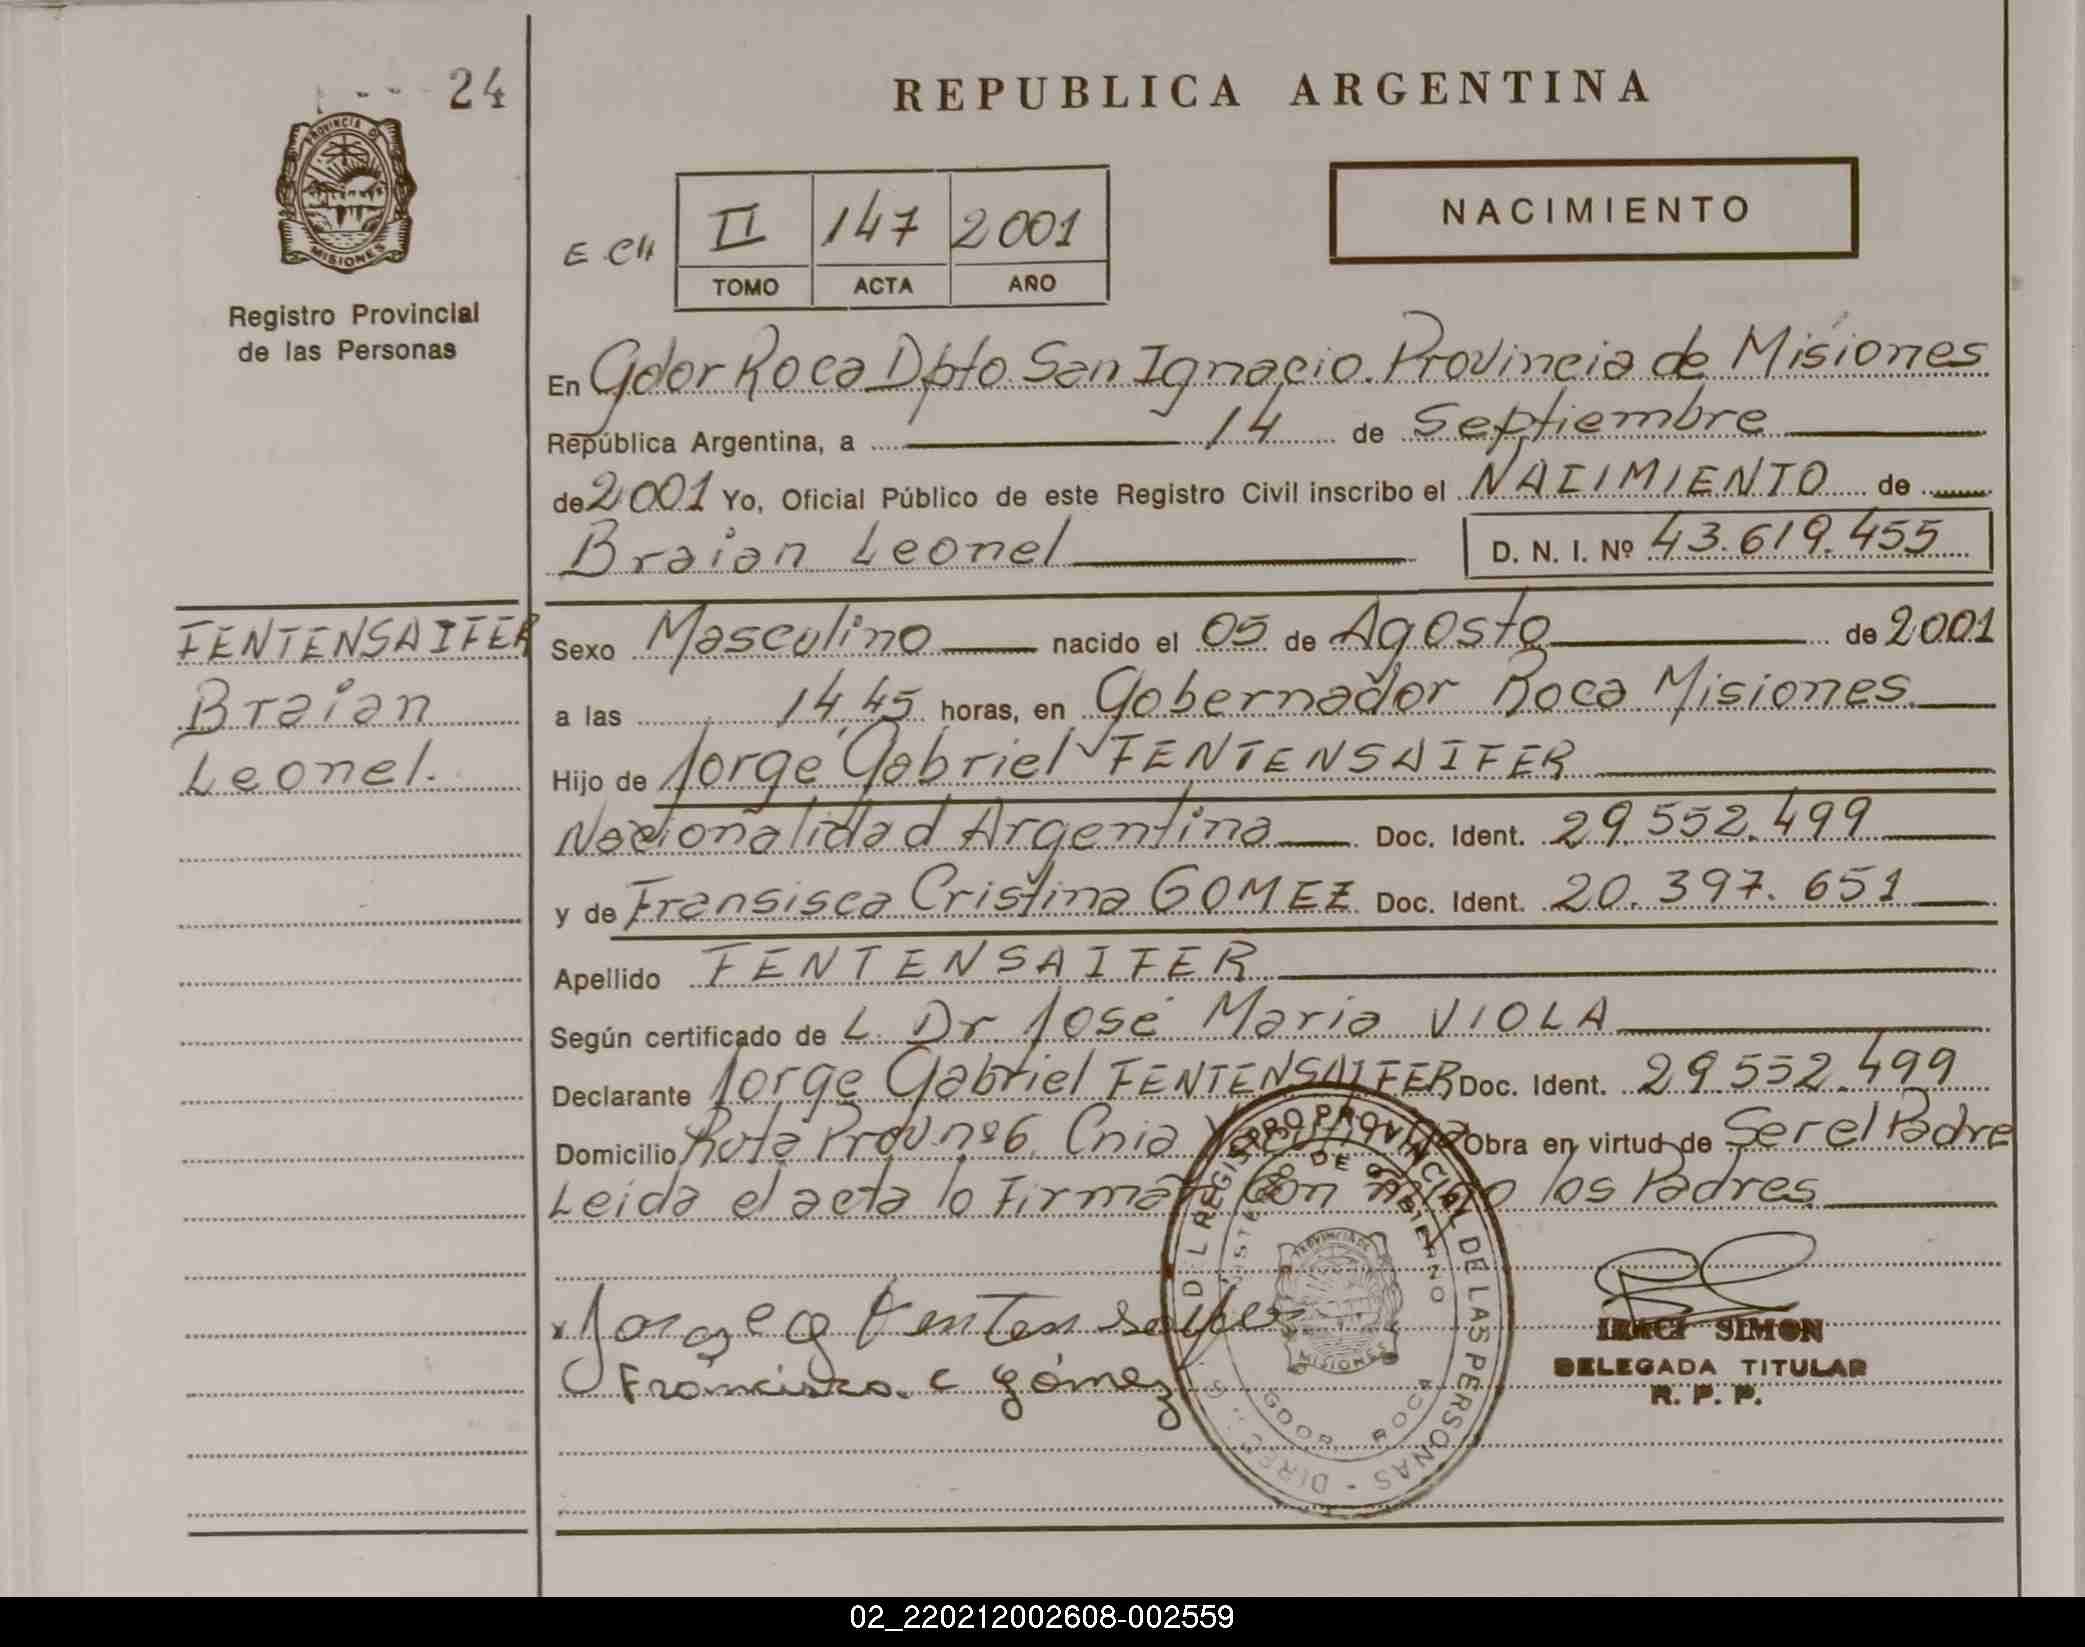 24
REPUBLICA ARGENTINA
PROVINCIA DE MISIONES
Registro Provincial
de las Personas
E. CH
II 147 2001
TOMO ACTA AÑO
NACIMIENTO
En Gdor Roca Dpto San Ignacio. Provincia de Misiones
República Argentina, a 14 de Septiembre
de 2001 Yo, Oficial Público de este Registro Civil inscribo el NACIMIENTO de
Braian Leonel D. N. I. Nº 43.619.455
FENTENSAIFER
Braian
Leonel.
Sexo Masculino nacido el 05 de Agosto de 2001
a las 14,45 horas, en Gobernador Roca Misiones.
Hijo de Jorge Gabriel FENTENSAIFER
Nacionalidad Argentina Doc. Ident. 29.552.499
y de Fransisca Cristina GOMEZ Doc. Ident. 20.397.651
Apellido FENTENSAIFER
Según certificado de L. Dr José Maria VIOLA
Declarante Jorge Gabriel FENTENSAIFER Doc. Ident. 29.552.499
Domicilio Ruta Prov. nº 6 Cnia Obra en virtud de Ser el Padre
Leida el acta lo Firman Con los Padres
Jorge g fentensaifer
Francisca. c gómez
DEL REGISTRO PROVINCIAL DE LAS PERSONAS
DE GOBIERNO
PROVINCIA DE MISIONES
GDOR. ROCA
IRACI SIMON
DELEGADA TITULAR
R. P. P.
02_220212002608-002559